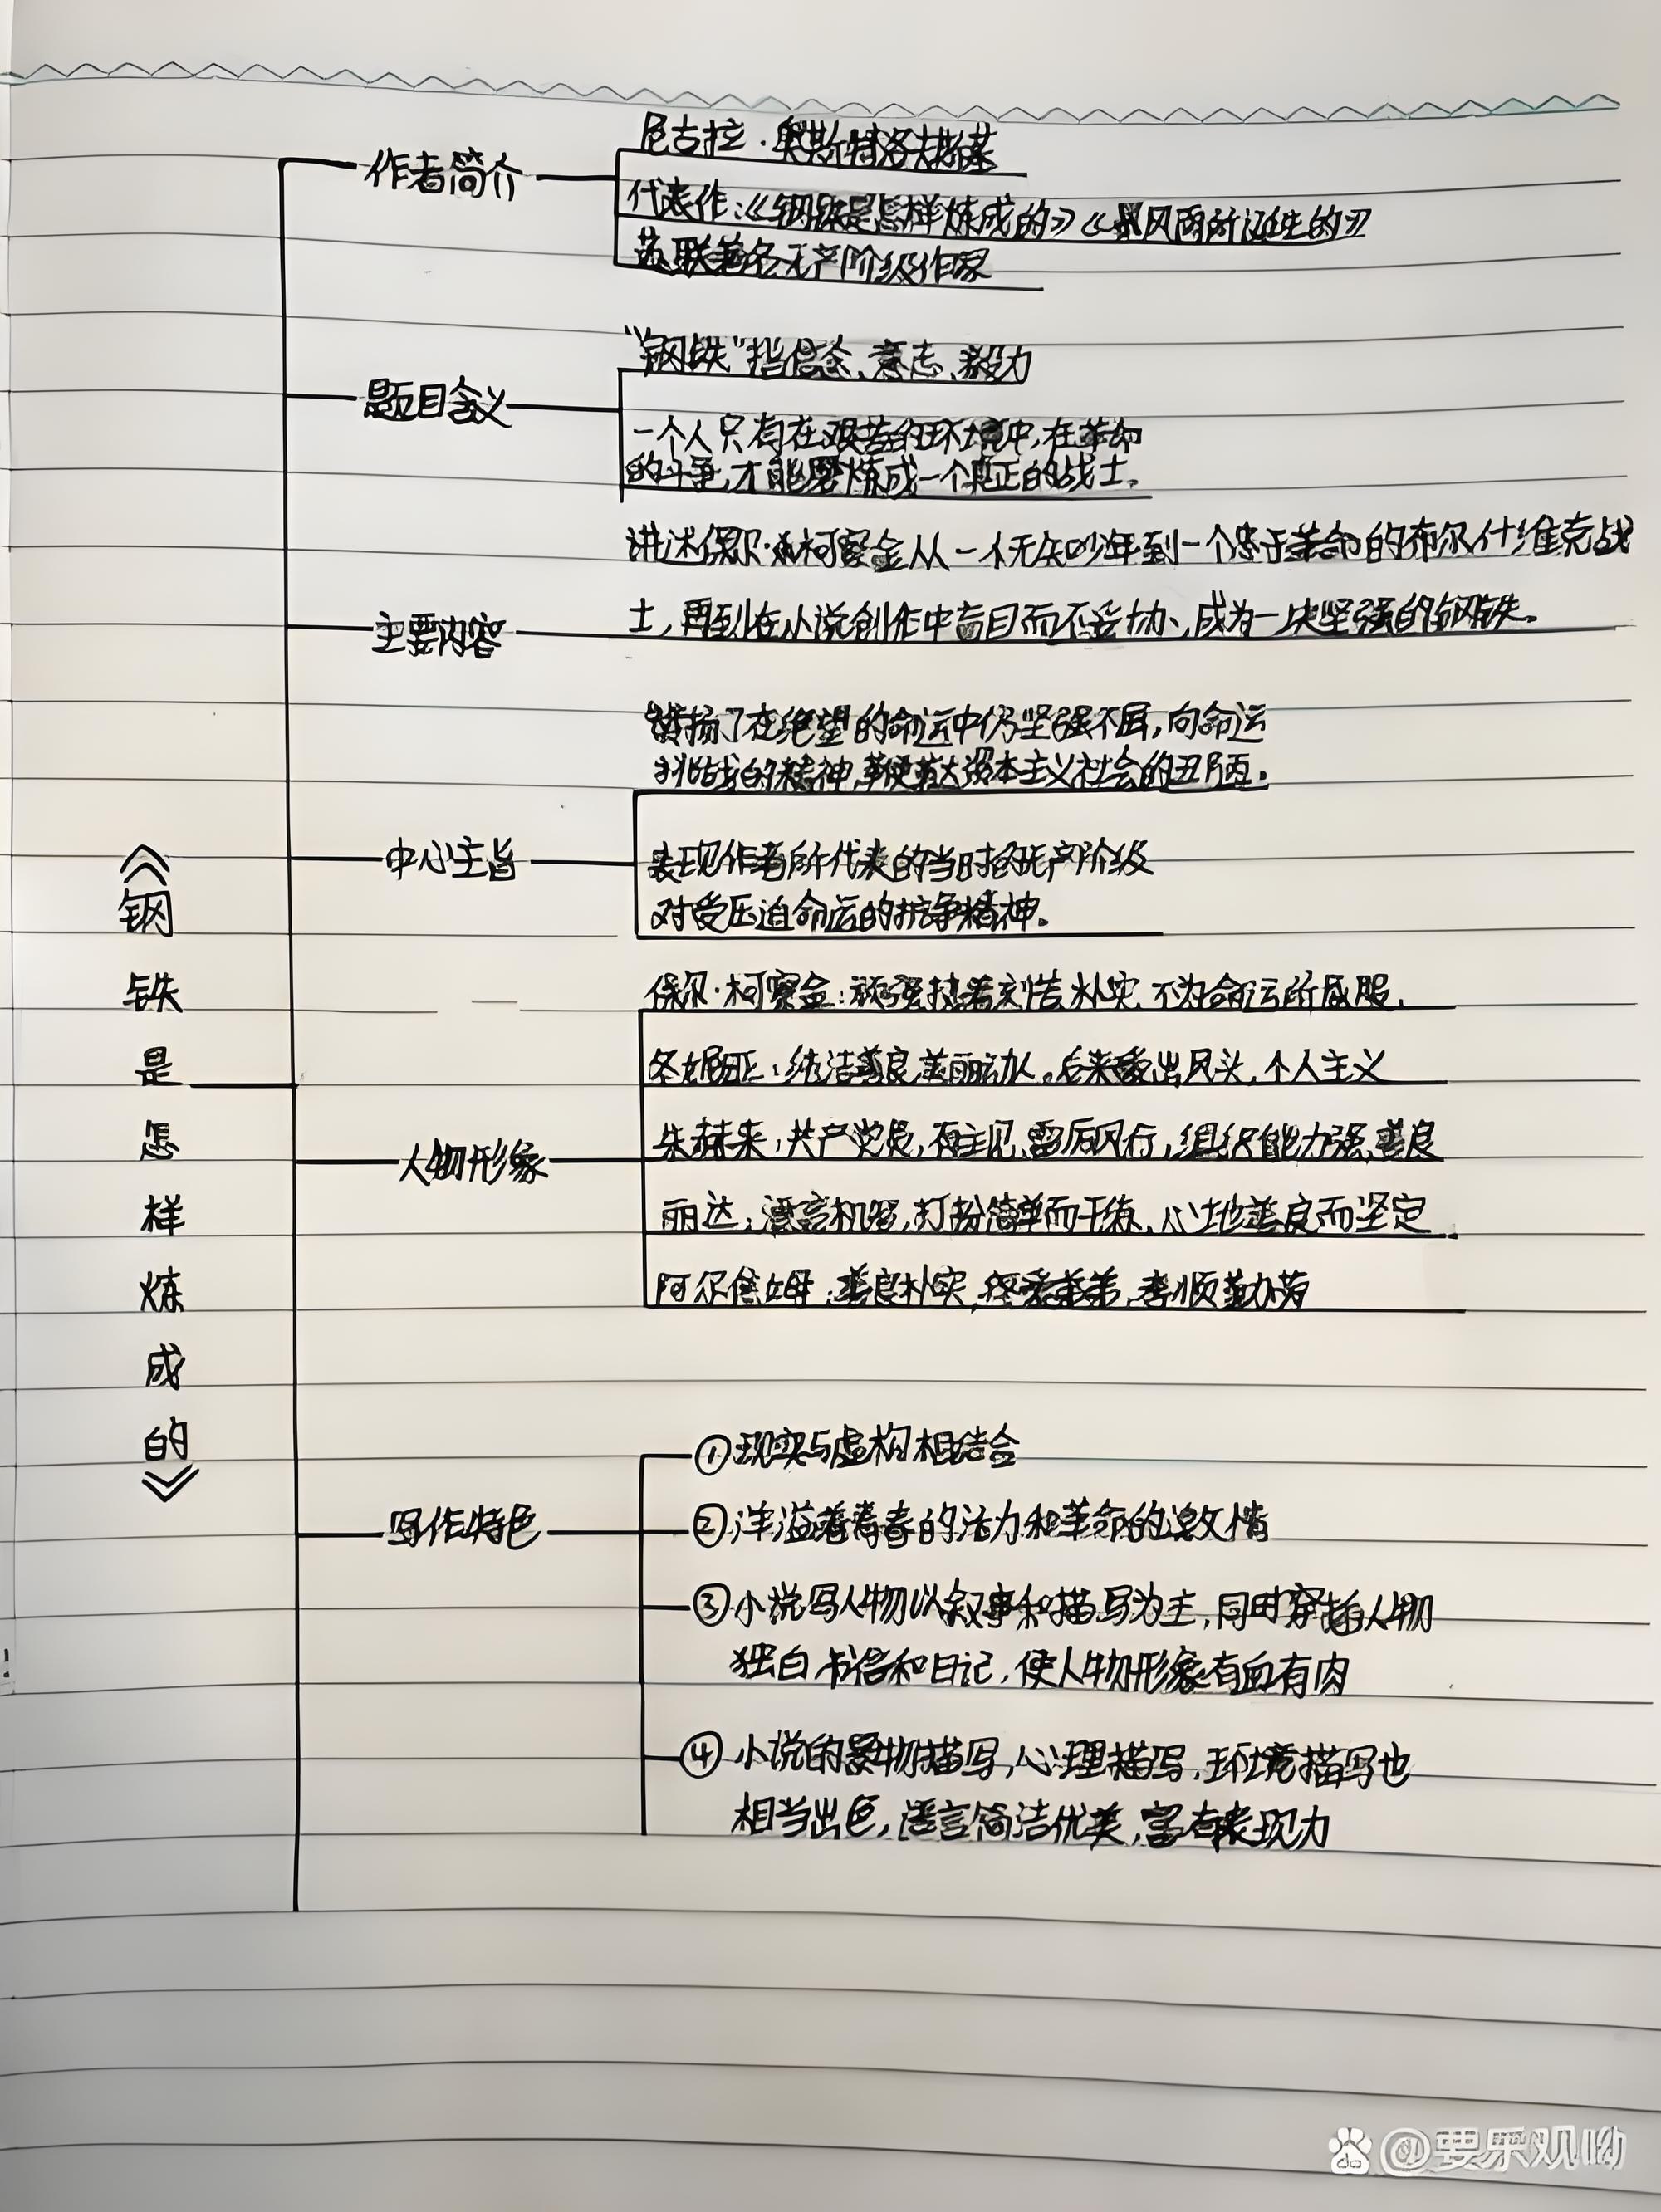 作者简介
尼古拉·奥斯特洛夫斯基
代表作:《钢铁是怎样炼成的》《暴风雨所诞生的》
苏联著名无产阶级作家
题目含义
“钢铁”指信念、意志、毅力
一个人只有在艰苦的环境中,在革命
的斗争,才能磨炼成一个真正的战士。
主要内容
讲述保尔·柯察金从一个无知少年到一个忠于革命的布尔什维克战
士,再到在小说创作中盲目而不妥协、成为一块坚强的钢铁。
中心主旨
赞扬了在绝望的命运中仍坚强不屈,向命运
挑战的精神,鞭挞了资本主义社会的丑陋。
表现作者所代表的当时的无产阶级
对受压迫命运的抗争精神。
《钢铁是怎样炼成的》
人物形象
保尔·柯察金:顽强执着刻苦朴实,不为命运所屈服.
冬妮亚:纯洁善良,美丽动人。后来爱出风头,个人主义
朱赫来:共产党员,有主见,雷厉风行,组织能力强,善良
丽达:漂亮机智,打扮简单而干练,心地善良而坚定.
阿尔焦姆:善良朴实,疼爱弟弟,孝顺勤劳
写作特色
①现实与虚构相结合
②洋溢着青春的活力和革命的激情
③小说写人物以叙事和描写为主,同时穿插人物
独白,书信和日记,使人物形象有血有肉
④小说的景物描写,心理描写,环境描写也
相当出色,语言简洁优美,富有表现力